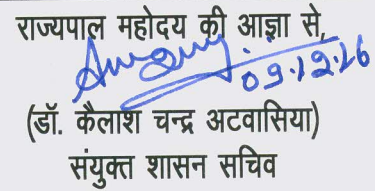 राज्यपाल महोदय की आज्ञा से,
09.12.16
(डॉ. कैलाश चन्द्र अटवासिया)
संयुक्त शासन सचिव